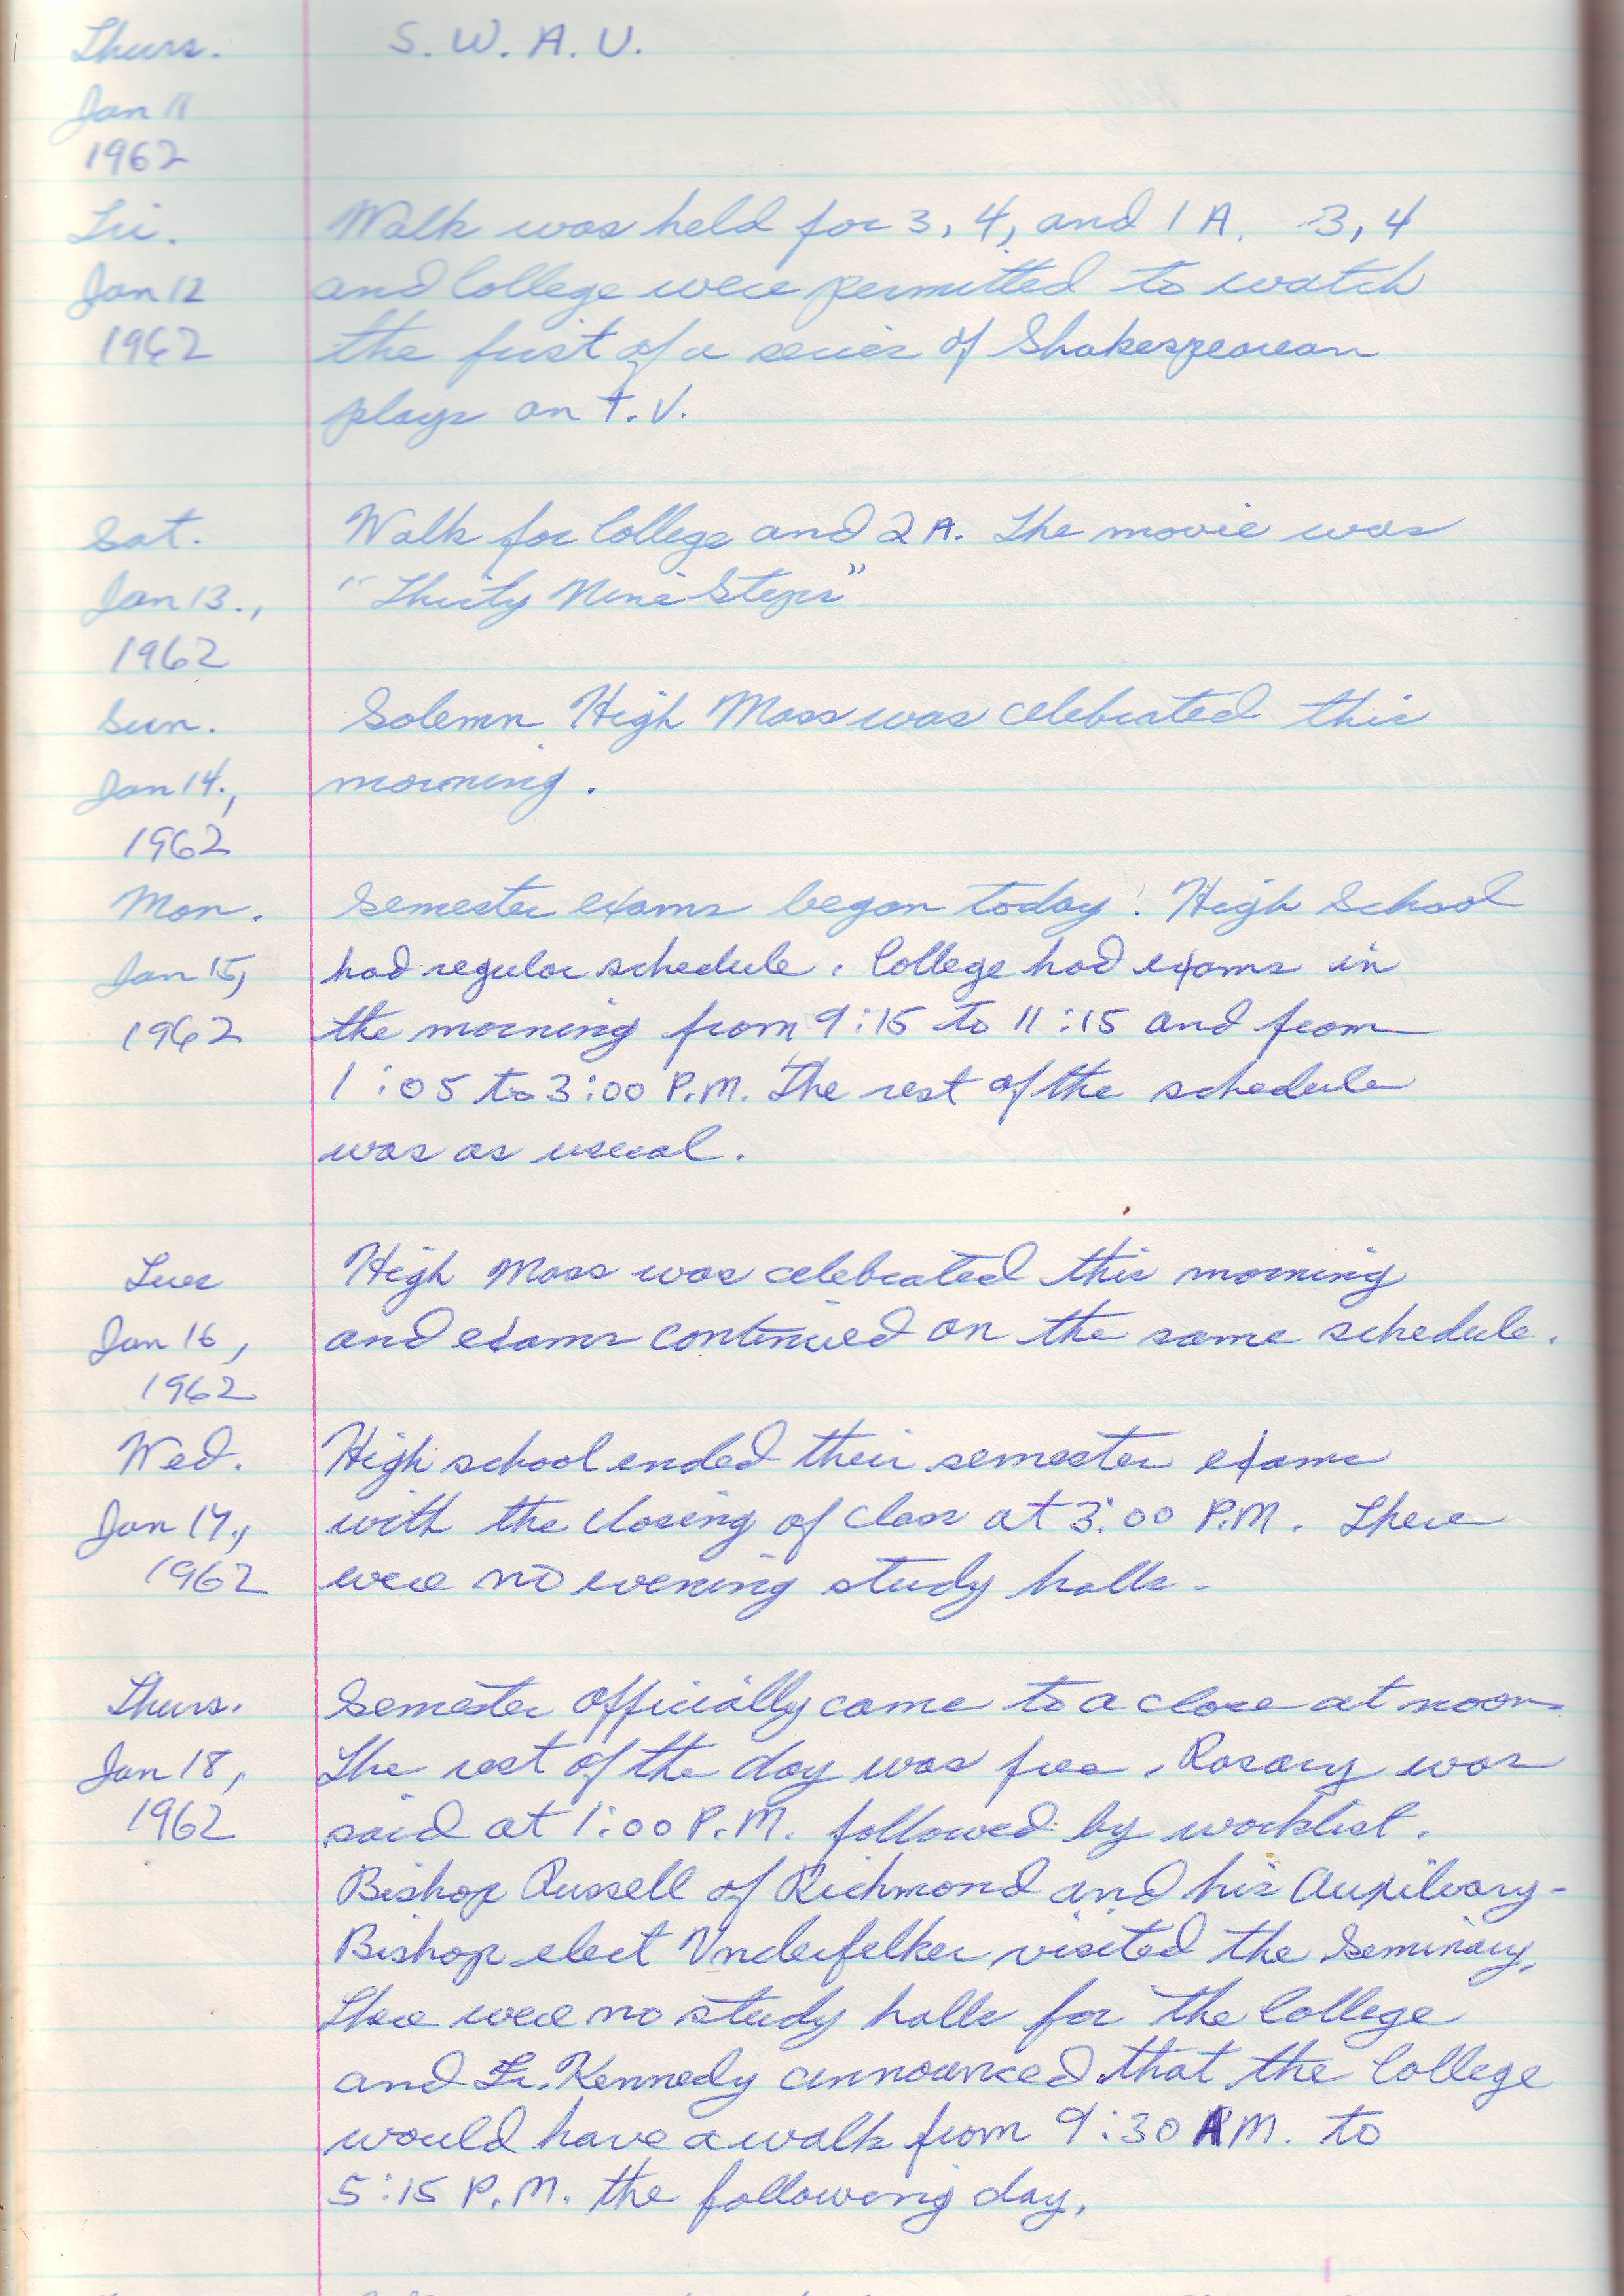 Thurs. S. W. A. U.
Jan 11
1962
Fri. Walk was held for 3, 4, and 1 A. 3, 4
Jan 12 and College were permitted to watch
1962 the first of a series of Shakespearean
plays on T.V.
Sat. Walk for College and 2 A. The movie was
Jan 13., "Thirty Nine Steps"
1962
Sun. Solemn High Mass was celebrated this
Jan 14., morning.
1962
Mon. Semester exams began today. High School
Jan 15, had regular schedule. College had exams in
1962 the morning from 9:15 to 11:15 and from
1:05 to 3:00 P.M. The rest of the schedule
was as usual.
Tues High Mass was celebrated this morning
Jan 16, and exams continued on the same schedule.
1962
Wed. High school ended their semester exams
Jan 17., with the closing of class at 3:00 P.M. There
1962 were no evening study halls.
Thurs. Semester officially came to a close at noon.
Jan 18, The rest of the day was free. Rosary was
1962 said at 1:00 P.M. followed by worklist.
Bishop Russell of Richmond and his Auxiliary-
Bishop elect Unterfelker visited the Seminary.
There were no study halls for the College
and Fr. Kennedy announced that the College
would have a walk from 9:30 A.M. to
5:15 P.M. the following day.